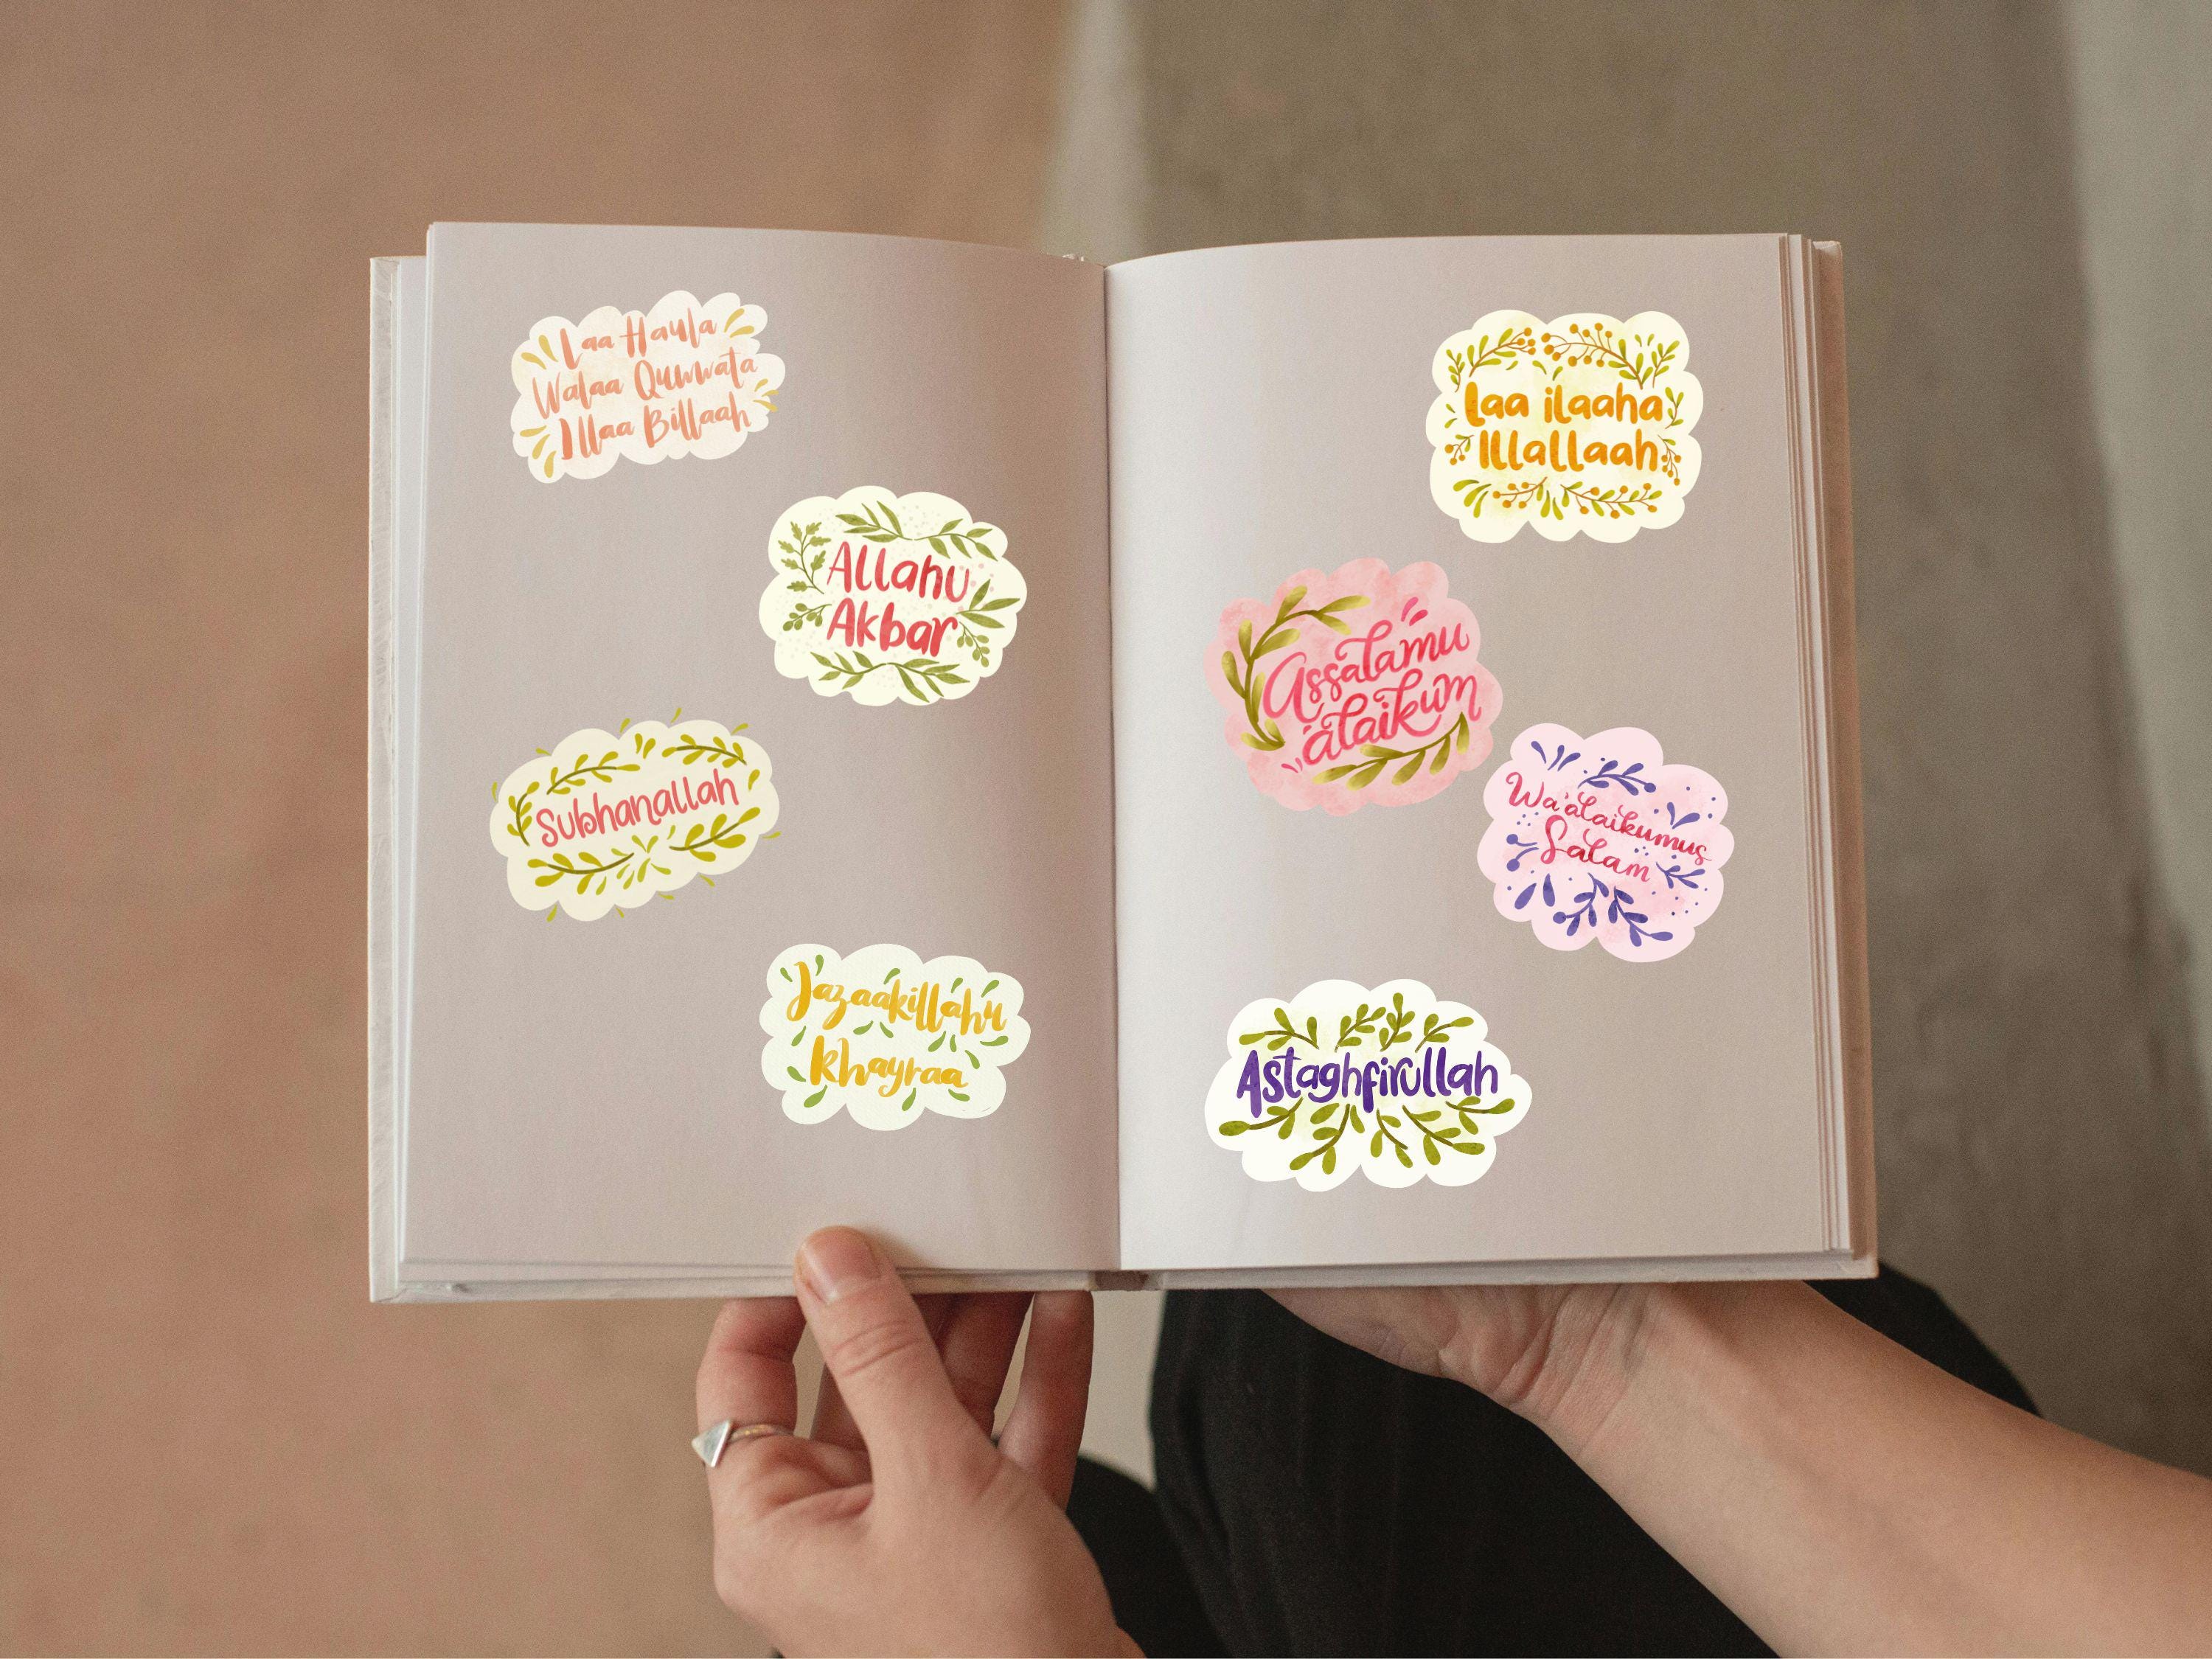 Laa Haula
Walaa Quwwata
Illaa Billaah
Allahu
Akbar
Subhanallah
Jazaakillahu
khayraa
Laa ilaaha
Illallaah
Assalamu
'alaikum
Wa'alaikumus
Salam
Astaghfirullah